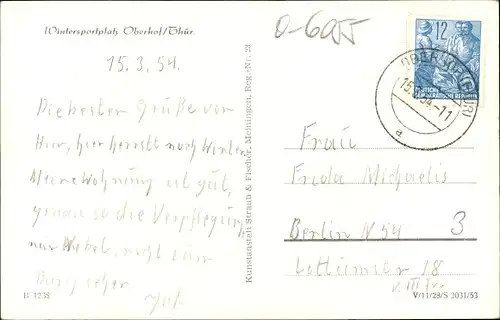 Wintersportplatz Oberhof/Thür.
15.3.54.
Die besten Grüße von
Hier, hier herrscht noch Winter
Meine Wohnung ist gut,
genau so die Verpflegung
nur Nebel, nicht zum
Durchsehen
B 1238
Kunstanstalt Straub & Fischer, Meiningen, Reg.-Nr: 23
0-6055
12
DEUTSCHE
DEMOKRATISCHE REPUBLIK
OBERHOF (THÜR)
15.3.54-11
a
Frau
Frida Michaelis
Berlin N 54
3
Lottumstr 18
v. III Tr.
V/11/28/S 2031/53